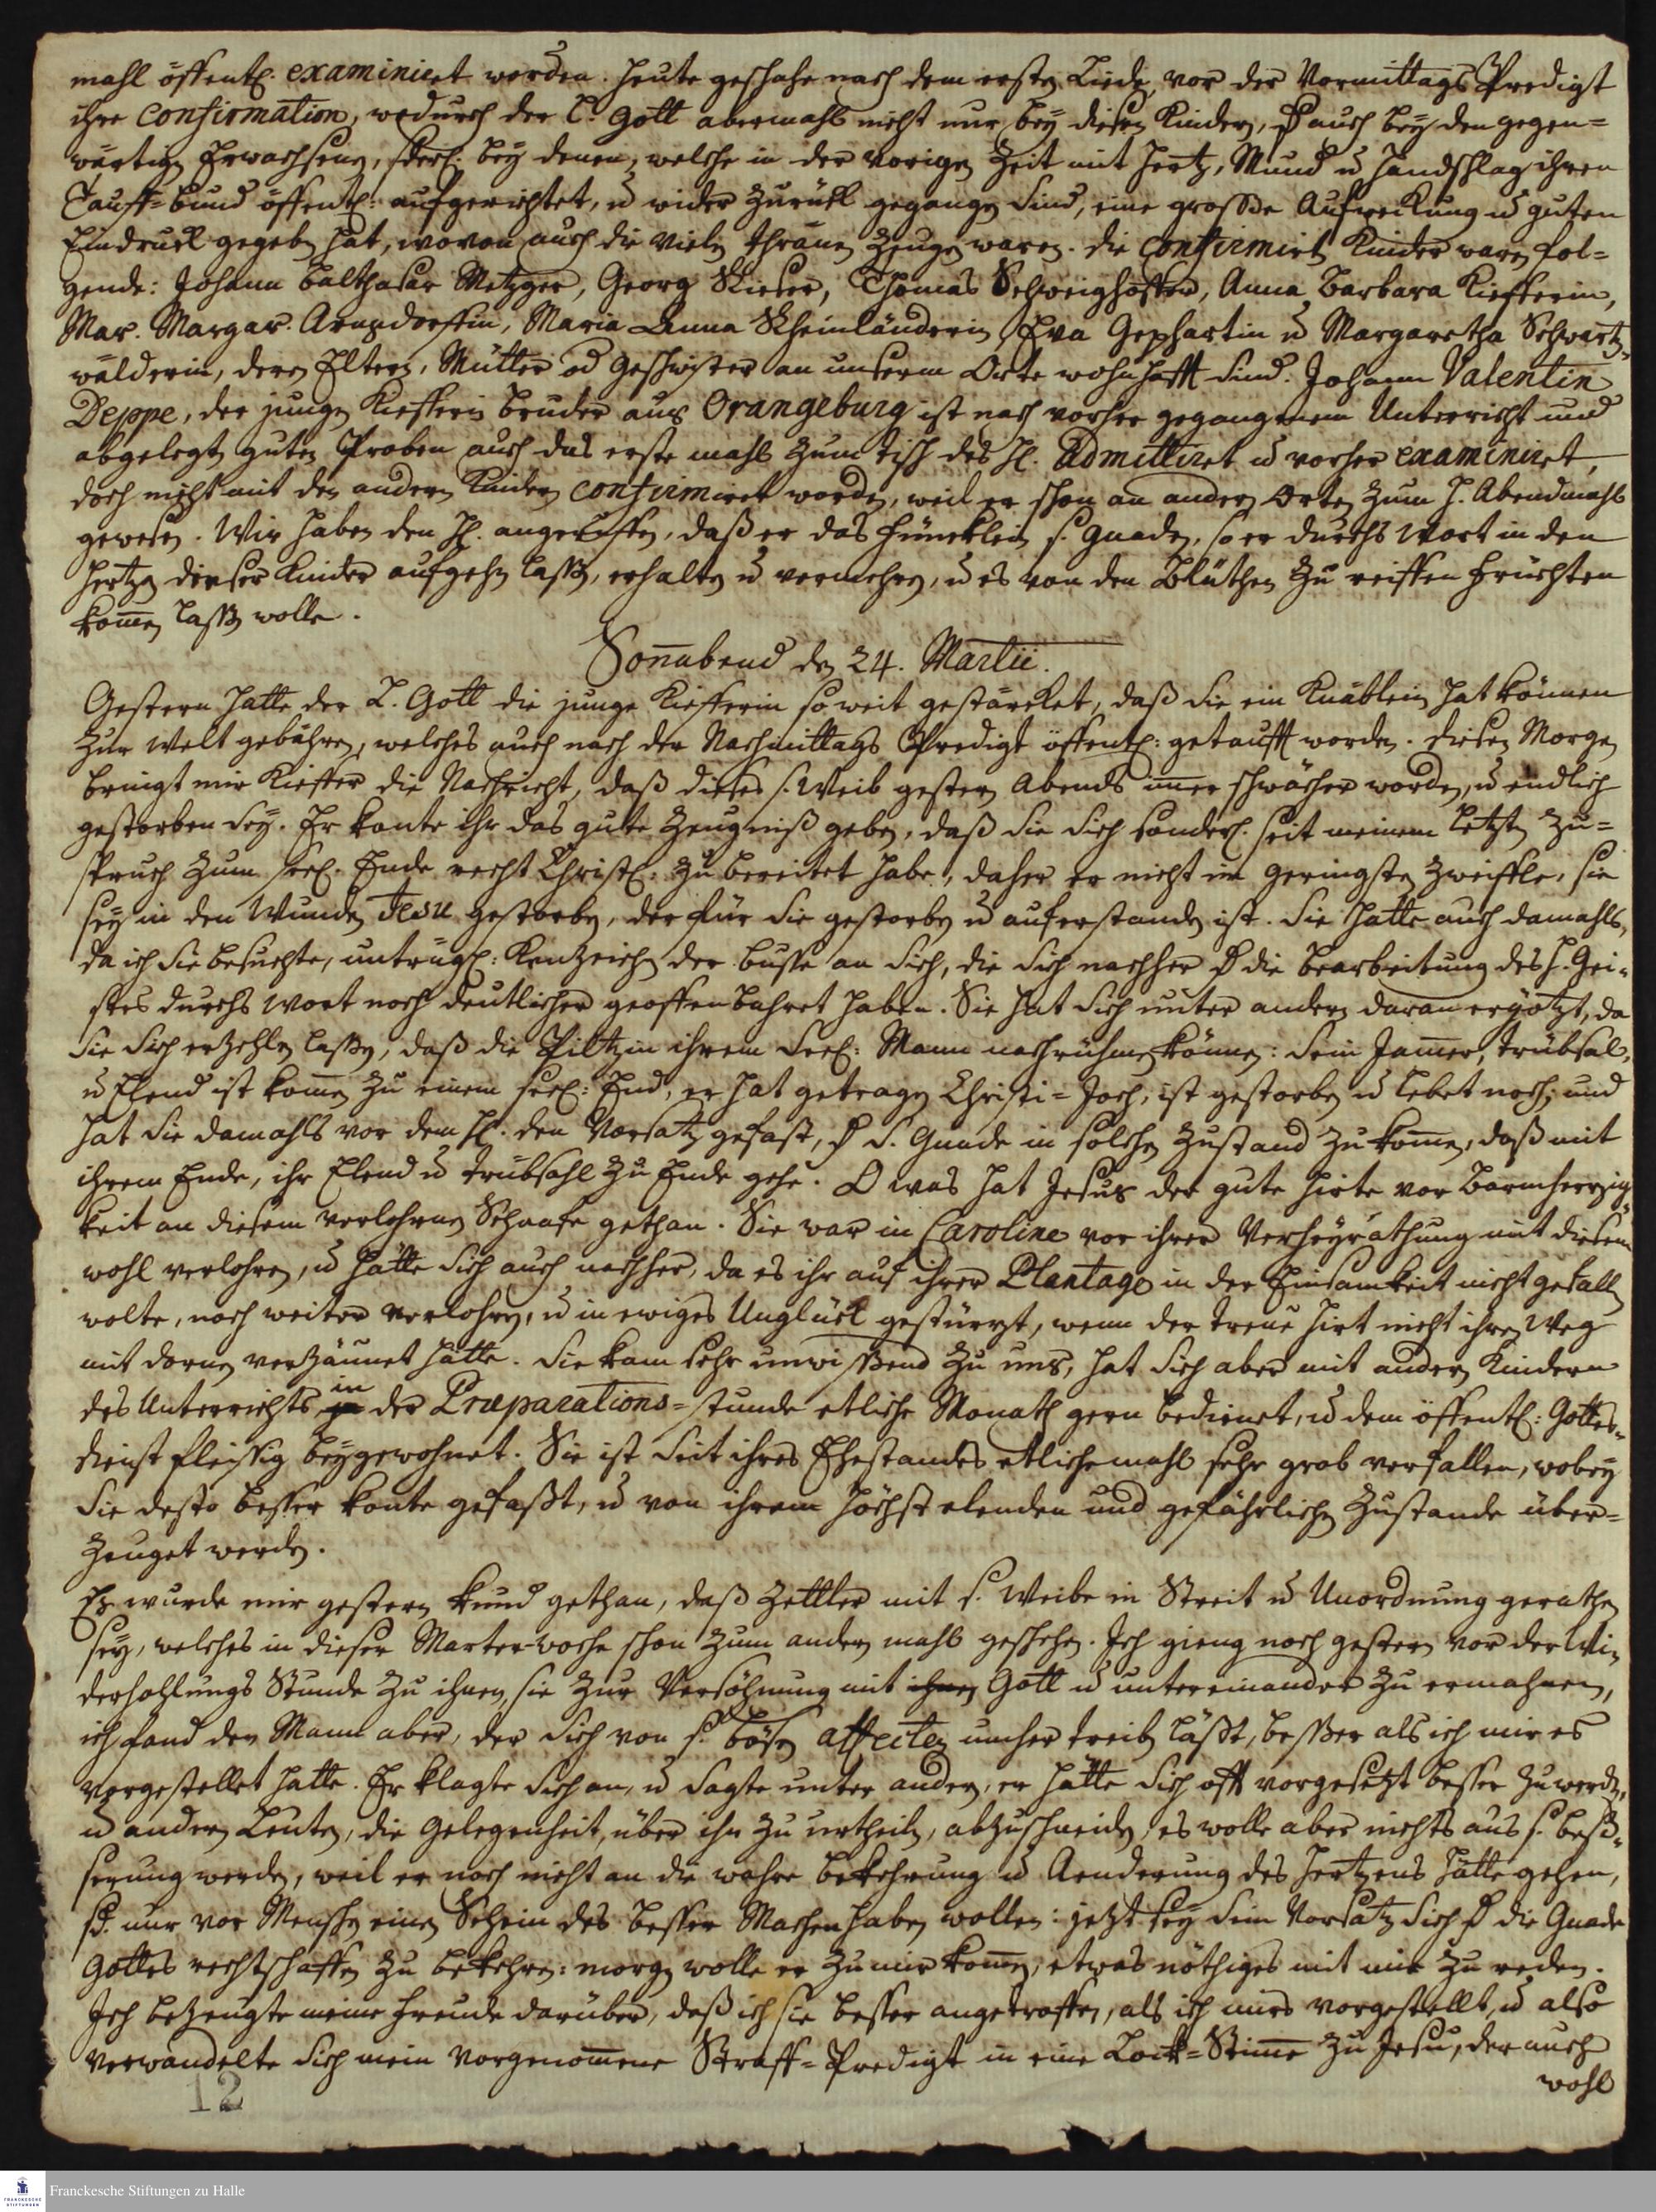 mahl öffentl. examiniret worden. Heute geschahe nach dem ersten Liede, vor der Vormittags Predigt
ihre Confirmation, wodurch der l. Gott abermahl nicht nur bey diesen Kindern, sd auch bey den gegen=
wärtigen Erwachsenen, sderl. bey denen, welche in der vorigen Zeit mit Hertz, Mund u Handschlag ihren
Tauff=bund öffentl: aufgerichtet, u wider zurück gegangen sind, eine grosse Aufweckung u guten
Eindruck gegeben hat, wovon auch die vielen thränen Zeugen waren. Die Confirmirten Kinder waren fol=
gende: Johann Balthasar Metzger, Georg Kieser, Thomas Schweighoffer, Anna Barbara Kiefferin,
Mar. Margar. Arnsdorffin, Maria Anna Rheinländerin, Eva Gephartin u Margaretha Schwartz=
wälderin, deren Eltern, Mütter od Geschwister an unserm Orte wohnhafft sind. Johann Valentin
Deppe, der jungen Kiefferin Bruder aus Orangeburg ist nach vorher gegangenem Unterricht und
abgelegten guten Proben auch das erste mahl zum tisch des H. admittiret u vorher examiniret,
doch nicht mit den andern Kindern confirmiret worden, weil er schon an andern Orten zum H. Abendmahl
gewesen. Wir haben den H. angeruffen, daß er das füncklein s. Gnaden, so er durchs Wort in den
Hertzen dieser Kinder aufgehen lassen, erhalten u vermehren, u es von den Blüthen zu reiffen Früchten
kom̄en lassen wolle.
Son̄abend den 24. Martii.
Gestern hatte der L. Gott die junge Kiefferin so weit gestärcket, daß sie ein Knäblein hat können
zur Welt gebähren, welches auch nach der Nachmittags Predigt öffentl: getaufft worden. Diesen Morgen
bringt mir Kieffer die Nachricht, daß dieses s. Weib gestern Abends im̄er schwächer worden, u endlich
gestorben sey. Er konte ihr das gute Zeugniß geben, daß sie sich sonderl. seit meinem letzten Zu=
spruch zum seel. Ende recht Christl: zu bereitet habe, daher er nicht im geringsten zweiffle, sie
sey in den Wunden Jesu gestorben, der für sie gestorben u auferstanden ist. Sie hatte auch damahls,
da ich sie besuchte, untrügl: Kenzeichen der Busse an sich, die sich nachher d die Bearbeitung des H. Gei=
stes durchs Wort noch deutlicher geoffenbahret haben. Sie hat sich unter andern daran ergötzt, da
sie sich erzehlen lassen, daß die Piltzin ihrem seel: Mann nachrühmen können: Sein Jam̄er, trübsal,
u Elend ist kom̄en zu einem seel: End, er hat getragen Christi=Joch, ist gestorben u lebet noch, und
hat sie damahls vor dem H. den Vorsatz gefast, d s. Gnade in solchen Zustand zu kom̄en, daß mit
ihrem Ende, ihr Elend u trübsahl zu Ende gehe. O was hat Jesus der gute Hirte vor Barmhertzig=
keit an diesem verlohrnen Schaafe gethan. Sie war in Caroline vor ihrer Verheyrathung mit diesem
wohl verlohren, u hätte sich auch nachher, da es ihr auf ihrer Plantage in der Einsamkeit nicht gefallen
wolte, noch weiter verlohren, u in ewiges Unglück gestürtzt, wenn der treue Hirt nicht ihren Weg
mit dornen verzäunet hätte. Sie kam sehr unwissend zu uns, hat sich aber mit andern Kindern
des Unterrichts in der Præparations=stunde etliche Monath gern bedienet, u dem öffentl: Gottes=
dienst fleissig beygewohnet. Sie ist seit ihres Ehestandes etlichemahl sehr grob verfallen, wobey
sie desto besser konte gefasst, u von ihrem höchst elenden und gefährlichen Zustande über=
zeuget werden.
Es wurde mir gestern kund gethan, daß Zettler mit s. Weibe in Streit u Unordnung gerathen
sey, welches in dieser Marter-woche schon zum andern mahl geschehen. Ich gieng noch gestern vor der Wi=
derhohlungs Stunde zu ihnen, sie zur Versöhnung mit ihnen Gott u untereinander zu ermahnen,
ich fand den Mann aber, der sich von s. bösen affecten umher treiben lässt, besser als ich mir es
vorgestellet hatte. Er klagte sich an, u sagte unter andern, er hätte sich offt vorgesetzt besser zu werden,
u andern Leuten, die Gelegenheit, über ihn zu urtheilen, abzuschneiden, es wolle aber nichts aus s. bess=
serung werden, weil er noch nicht an die wahre Bekehrung u Aenderung des Hertzens hätte gehen,
sd. nur vor Menschen einen Schein des besser Machen haben wollen: jetzt sey sein Vorsatz sich d die Gnade
Gottes rechtschaffen zu bekehren: morgen wolle er zu mir kom̄en, etwas nöthiges mit mir zu reden.
Ich bezeugte meine Freude darüber, daß ich sie besser angetroffen, als ich mirs vorgestellt, u also
verwandelte sich mein vorgenom̄ene Straff=Predigt in eine Lock=Stim̄e zu Jesu, der auch
wohl
12
Franckesche Stiftungen zu Halle